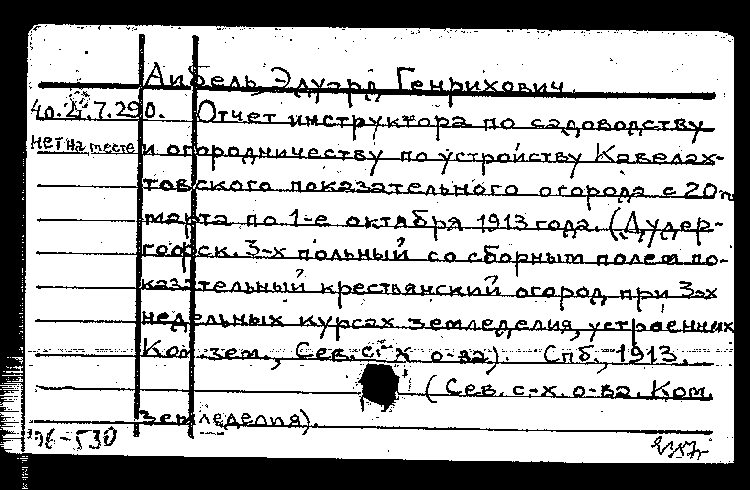 Аибель, Эдуард Генрихович
40.25.7.290. Отчет инструктора по садоводству
нет на месте и огородничеству по устройству Кавелах-
товского показательного огорода с 20го
марта по 1-е октября 1913 года. (Дудер-
гофск. 3-х польный со сборным полем по-
казательный крестьянский огород при 3-х
недельных курсах земледелия, устроенных
Ком. зем., Сев. с.-х о-ва). Спб., 1913.
(Сев. с-х. о-ва. Ком.
земледелия).
96-530